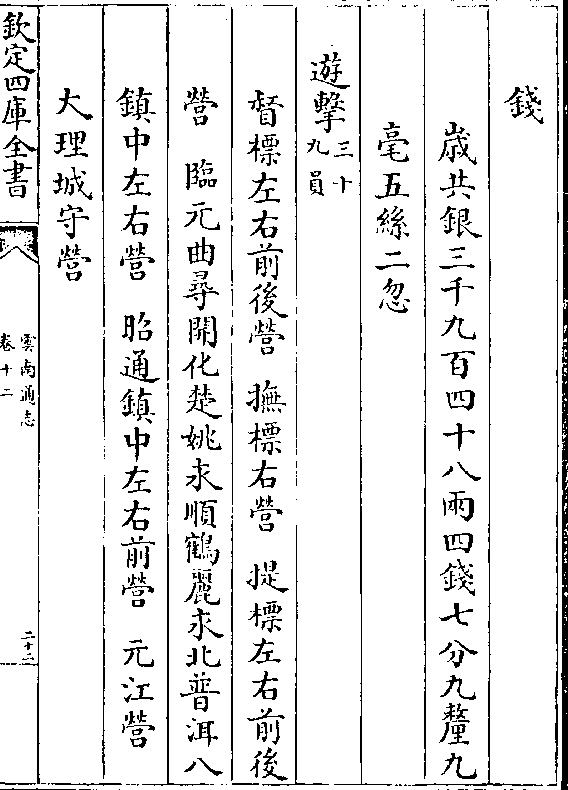 錢
歲共銀三千九百四十八兩四錢七分九釐九
毫五絲二忽
遊擊三十九員
督標左右前後營 撫標右營 提標左右前後
營 臨元曲尋開化楚姚永順鶴麗永北普洱八
鎮中左右營 昭通鎮中左右前營 元江營
大理城守營
欽定四庫全書
雲南通志
卷十二
二十二